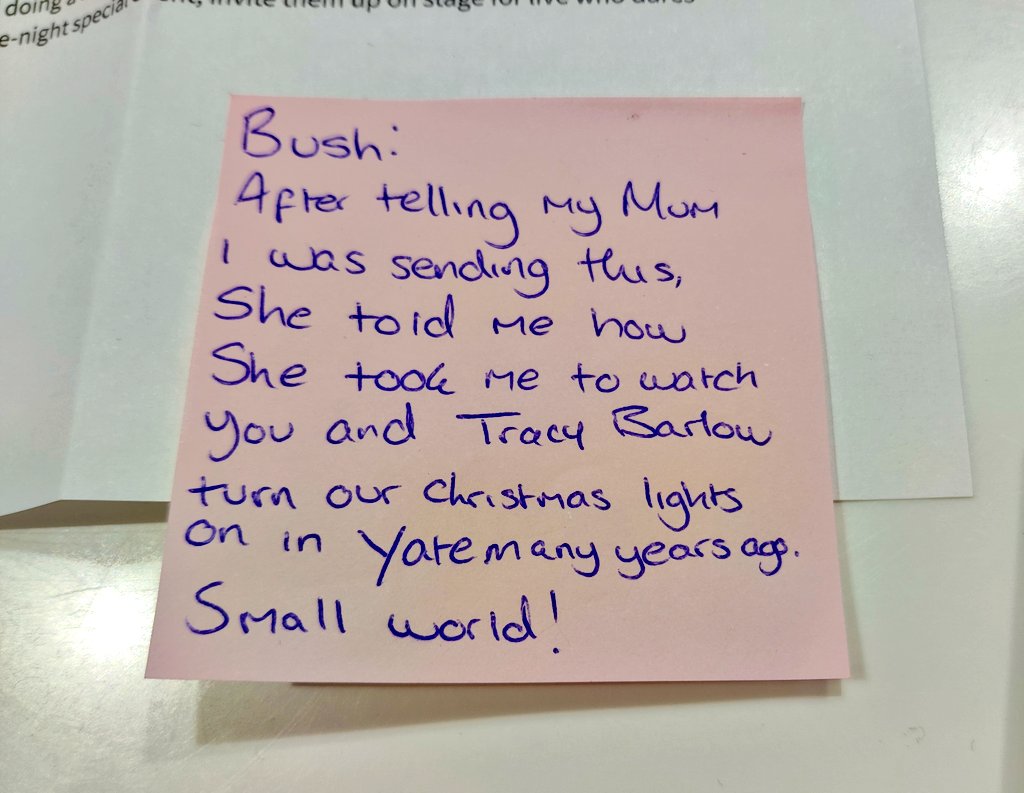 doing a
e-night special
nt, invite them up on stage for live who dares
Bush:
After telling my Mum
I was sending this,
She told me how
She took me to watch
you and Tracy Barlow
turn our christmas lights
on in Yate many years ago.
Small world!